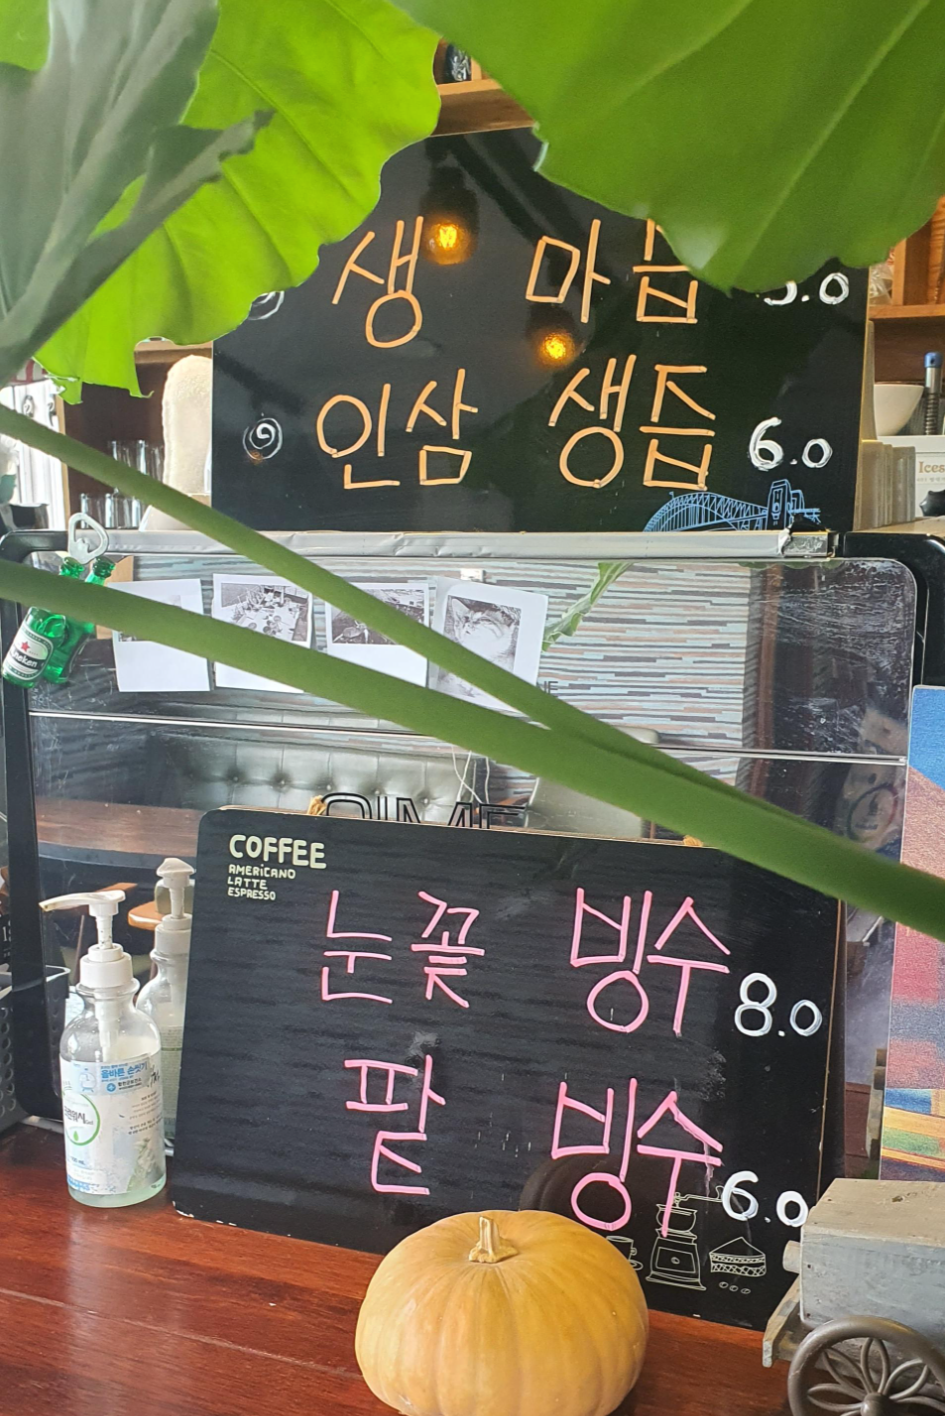 생 마즙 5.0
인삼 생즙 6.0
Ices
COFFEE
AMERICANO
LATTE
ESPRESSO
눈꽃 빙수 8.0
팥 빙수 6.0
올바른 손씻기